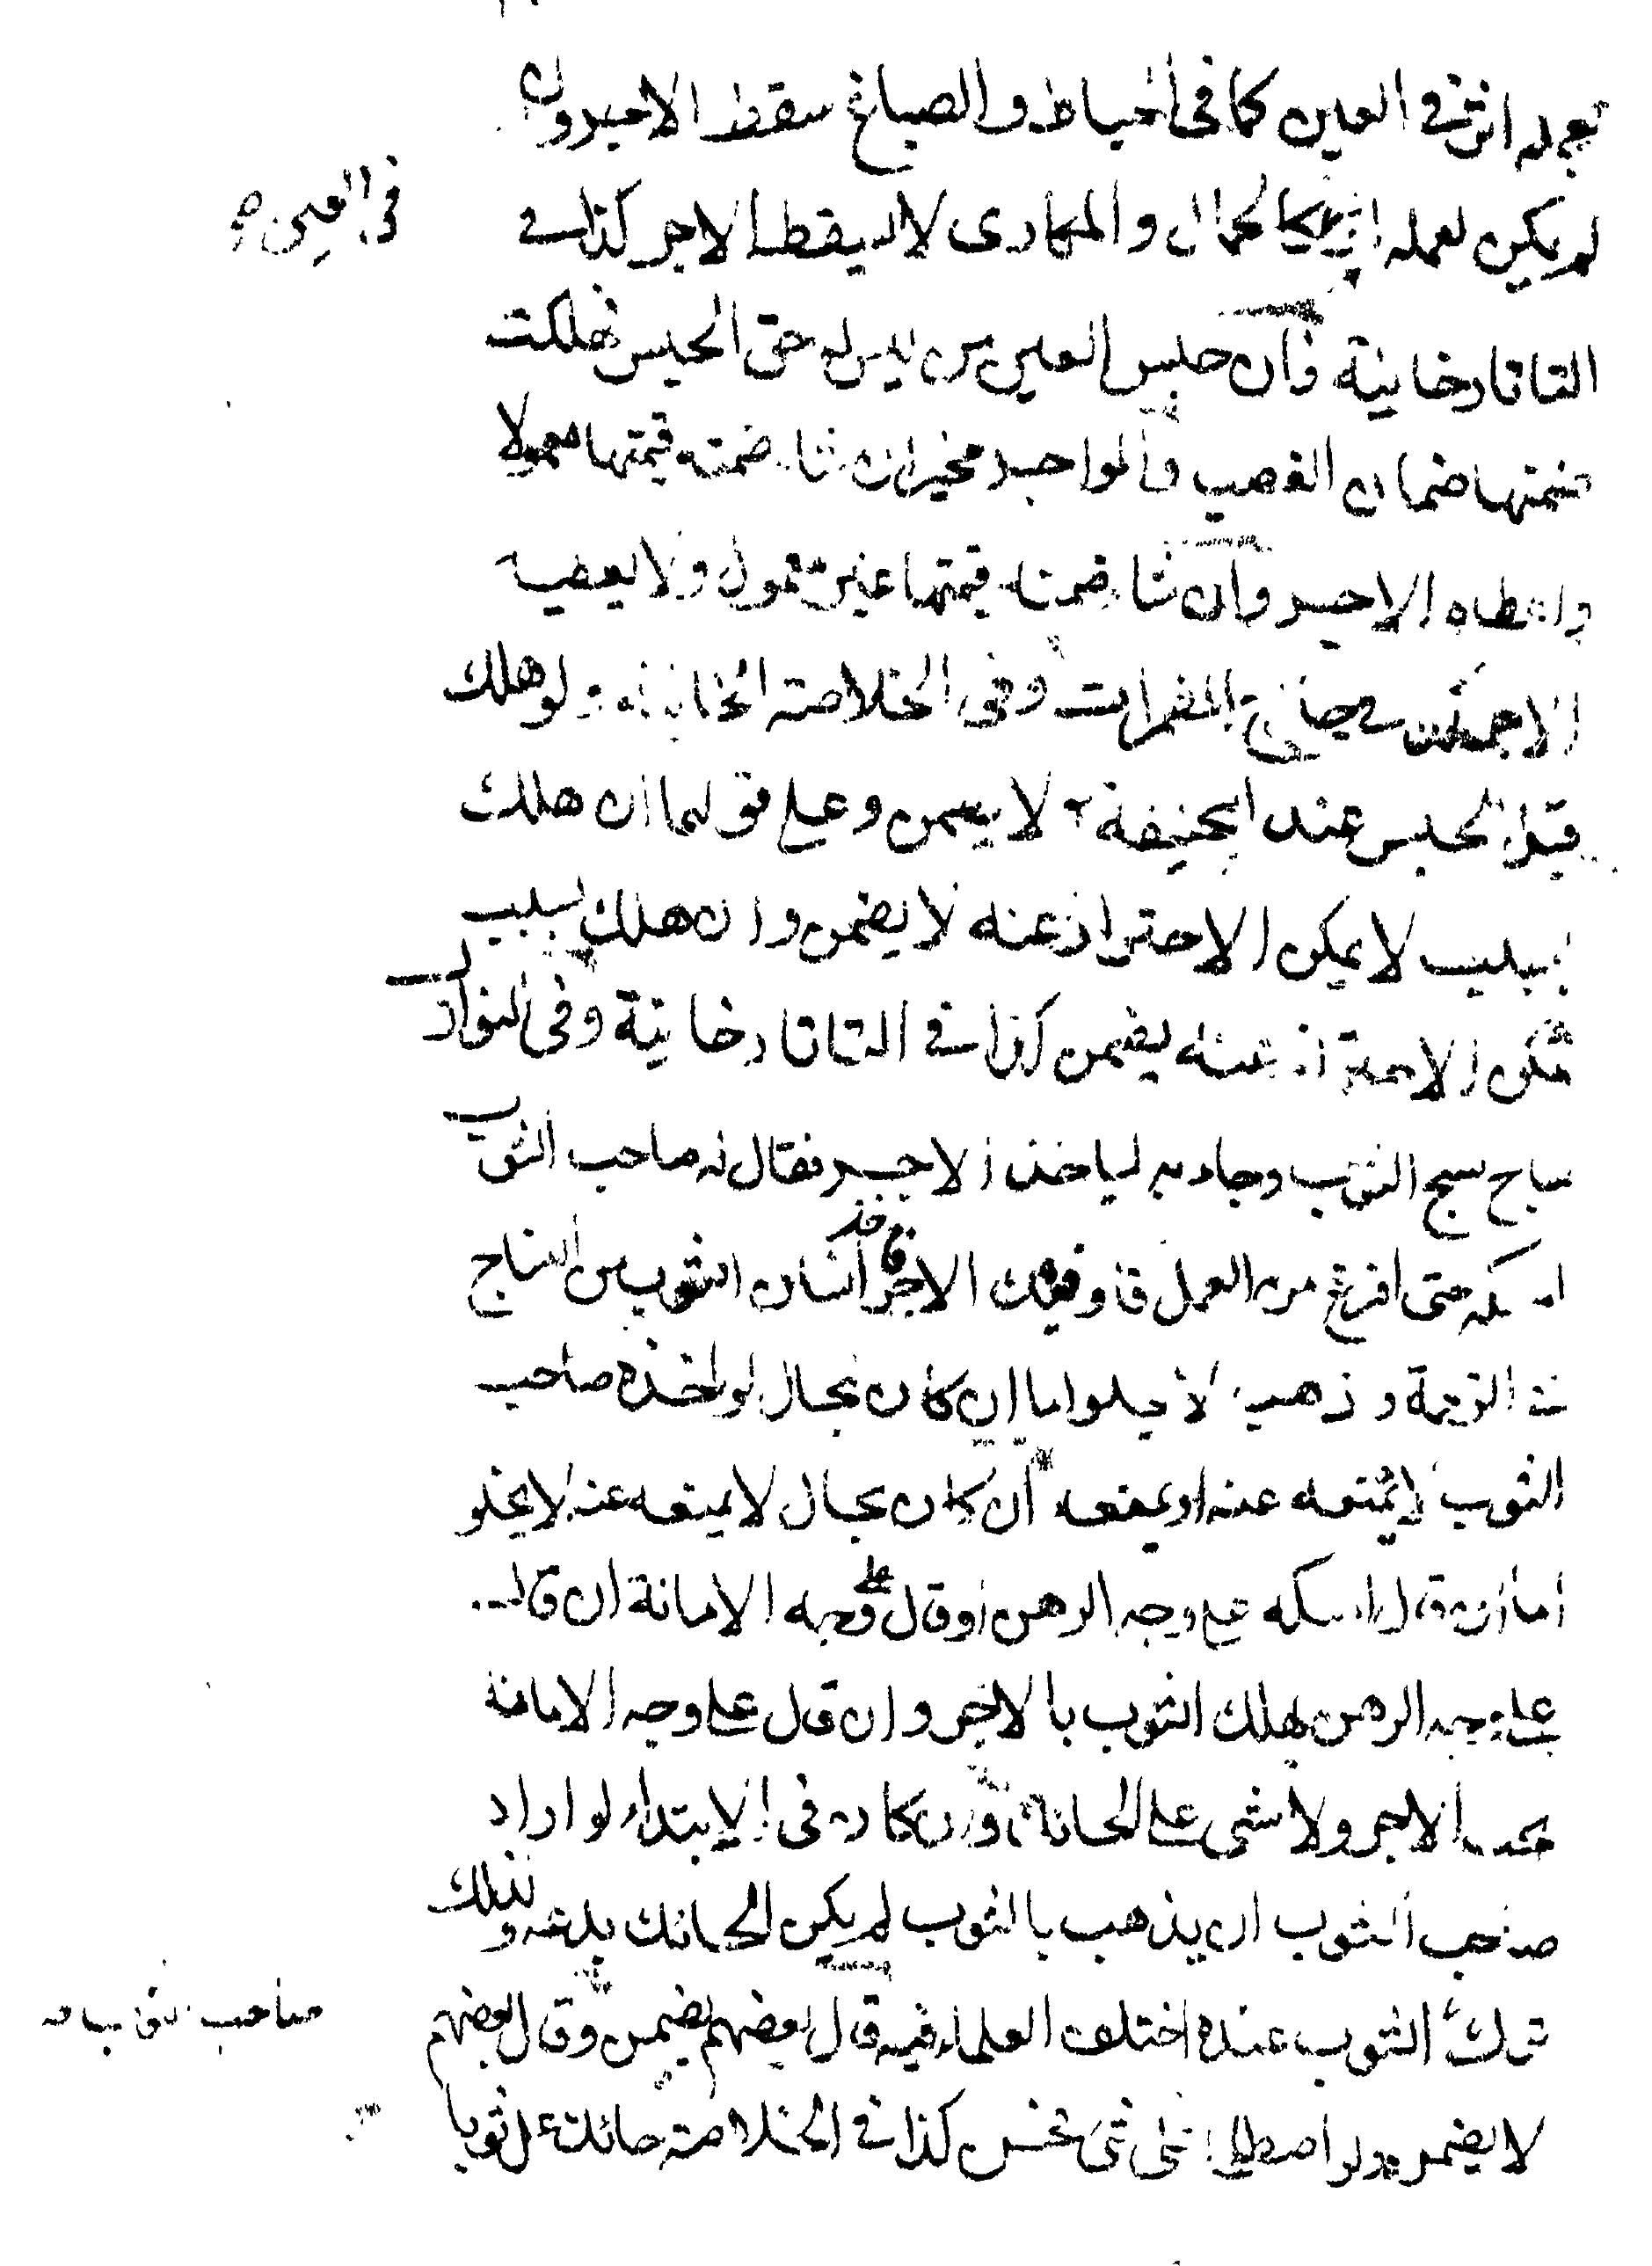 اثر في العين كما في الخياط والصباغ سقط الاجر وان
لم يكن لعمله اثر كالحمال والمكارى لا يسقط الاجر كذا في
في العين
التاتارخانية وان حبس العين من ليس له حق الحبس فهلكت
ضمنها ضمان الغصب والمواجر مخير ان شاء ضمنه قيمتها معمولا
واعطاه الاجر وان شاء ضمنه قيمتها غير معمول ولا يعطيه
الاجر في المضمرات وفي الخلاصة الخانية لو هلك
قبل الحبس عند ابيحنيفة لا يضمن وعلى قولهما ان هلك
بسبب لا يمكن الاحتراز عنه لا يضمن وان هلك بسبب
يمكن الاحتراز عنه يضمن كذا في التاتارخانية وفي النوازل
نساج نسج الثوب وجاء به لياخذ الاجر فقال له صاحب الثوب
امسكه حتى افرغ من العمل فاوفيك الاجر فاخذ انسان الثوب من النساج
في الزحمة وذهب لا يخلوا اما ان كان بحال لو اخذه صاحب
الثوب لا يمنعه عنه او يمنعه ان كان بحال لا يمنعه عنه لا يخلو
اما ان قال امسكه على وجه الرهن او قال على وجه الامانة ان قال
على وجه الرهن يهلك الثوب بالاجر وان قال على وجه الامانة
الاجر ولا شى على وان كان في الابتداء لو اراد
صاحب الثوب ان يذهب بالثوب لم يكن الحائك يدعه ولذلك
ترك الثوب عنده اختلف العلماء فيه قال بعضهم يضمن وقال بعضهم
صاحب الثوب
لا يضمن ولو اصطلحا على شئ فحسن كذا في الخلاصة حائك عمل ثوبا